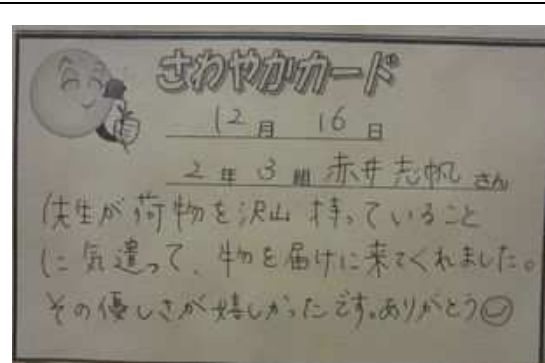 さわやかカード
12月 16日
2年 3組 赤井志帆さん
先生が荷物を沢山持っていること
に気遣って、物を届けに来てくれました。
その優しさが嬉しかったです。ありがとう